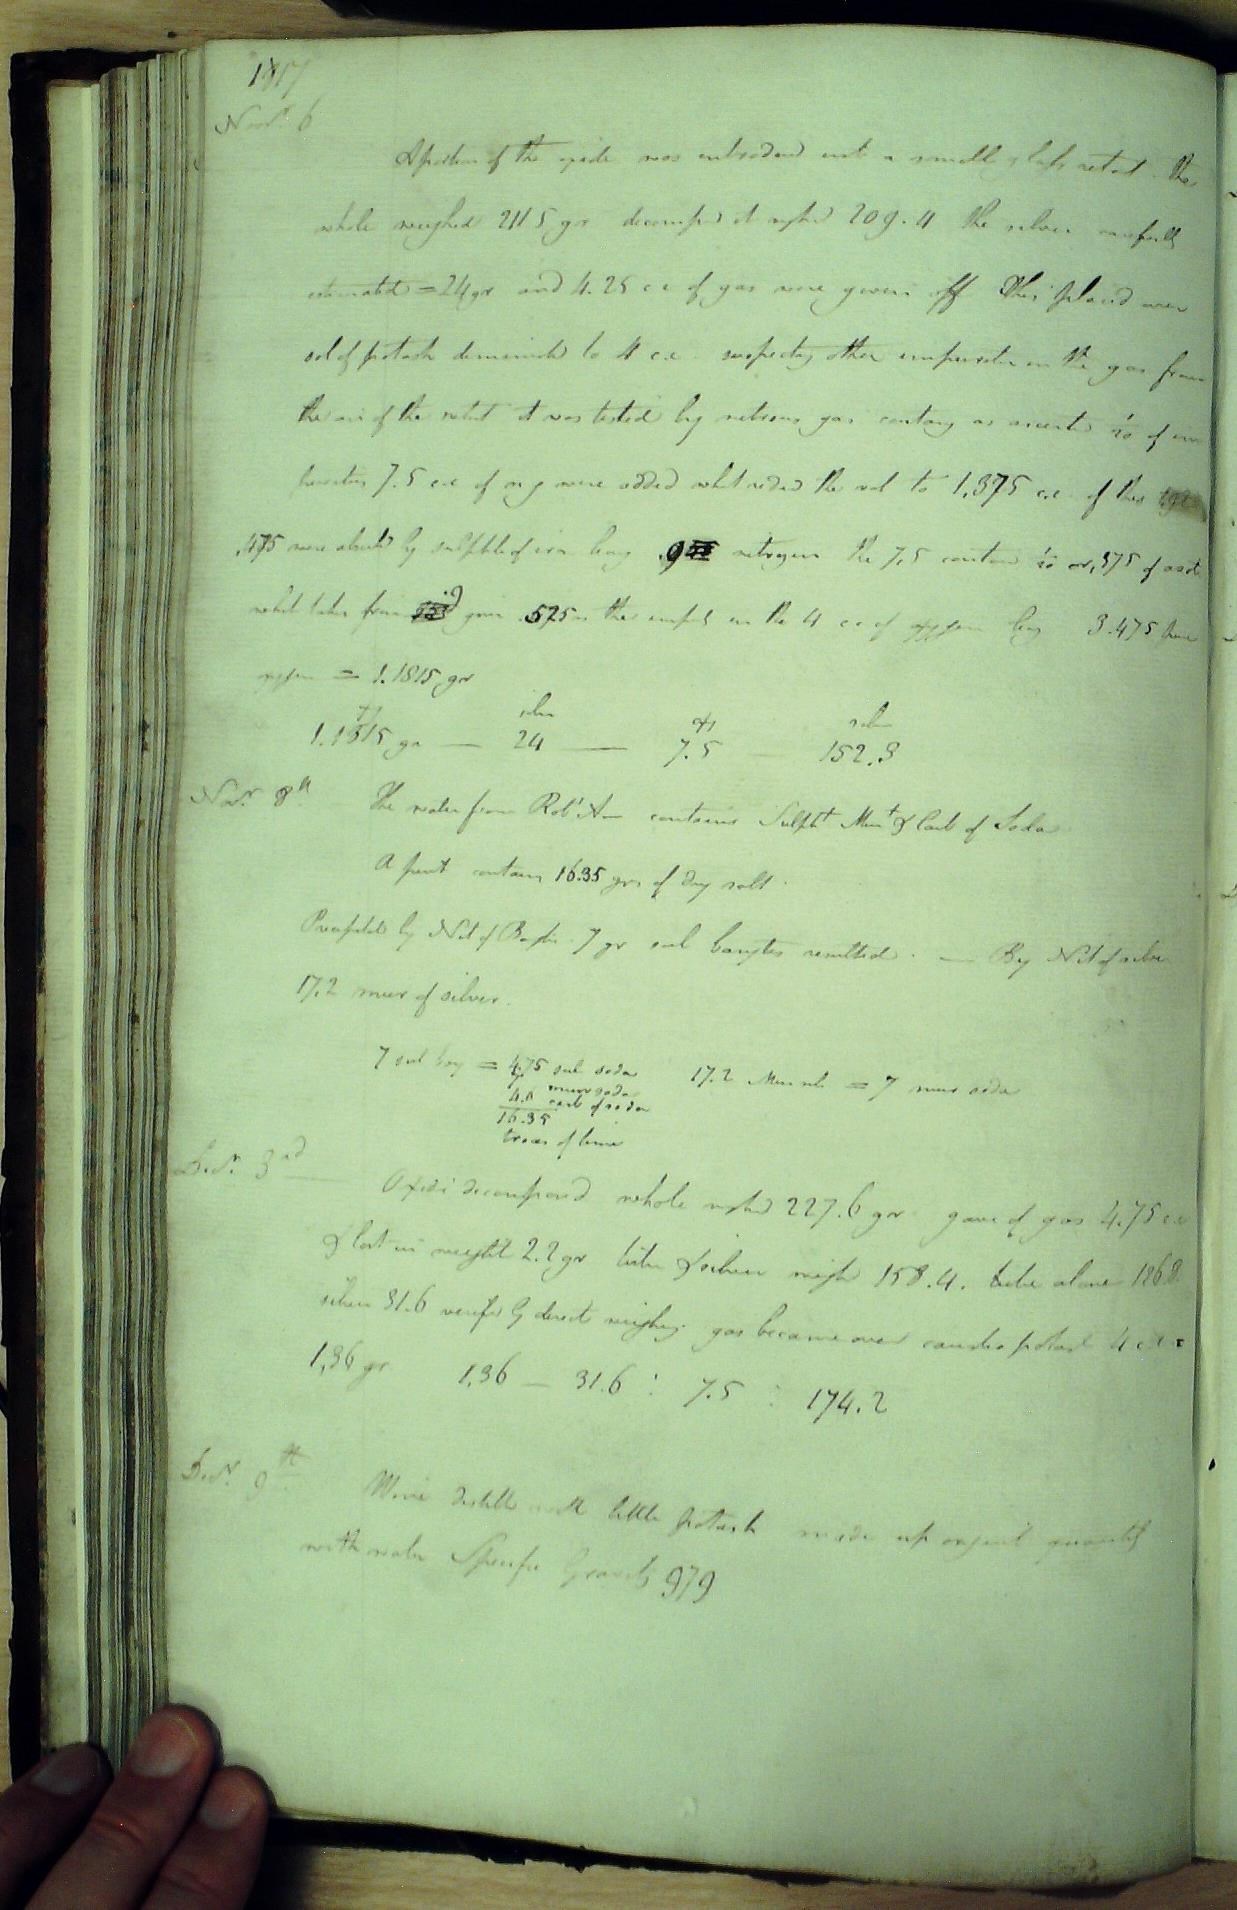 1817
Novr. 6
A portion of the oxide was introduced into a small glass retort. The
whole weighed 211.5 gr decomposed it weighd 209.4 the silver carefully
estimated = 24 gr and 4.25 c.i of gas were given off This placed over
sol of potash diminished to 4 c.i. suspecting other impurities in the gas from
the air of the retort it was tested by nitrous gas containg as ascertd 1/20 of im
purities 7.5 c.i. of n g were added which reduced the vol to 1.375 c.i. of this
.475 were absorbd by sulphate of iron leaving .9 nitrogen the 7.5 contained 1/20 or .375 of azote
which taken from .9 gives .525 as the impurity in the 4 c.i of oxygen leaving 3.475 pure
oxygen = 1.1815 gr
ox silver ox silver
1.1815 gr — 24 — 7.5 — 152.3
Novr. 8th The water from Robt A— contains Sulpht Murt & Carb of Soda
A pint contains 16.35 grs of dry salt.
Precipitated by Nit of Barytes 7 gr sul barytes resulted. — By Nit of silver
17.2 mur of silver.
7 sul bary = 4.75 sul soda 17.2 Mur silv = 7 mur soda
7 mur soda
4.6 carb of soda
16.35
traces of lime
Decr. 3rd — Oxide decomposed whole weighd 227.6 gr gave of gas 4.75 c.i
& lost in weight 2.2 gr tube & silver weigh 158.4. tube alone 126.8
silver 31.6 verified by direct weighing. gas became over caustic potash 4 c.i =
1.36 gr 1.36 — 31.6 : 7.5 : 174.2
Decr. 9th Wine distilled with little potash made up original quantity
with water Specific Gravity 979